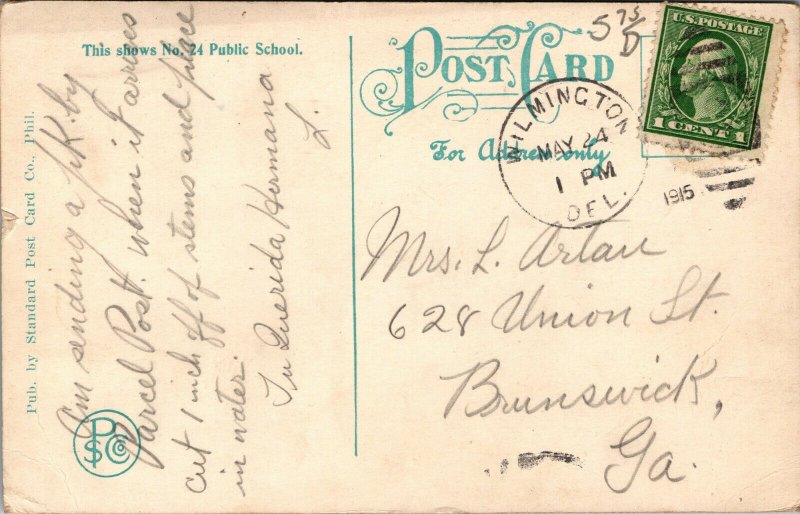 This shows No. 24 Public School.
POST CARD
For Address only
5 75/D
U.S. POSTAGE
1 CENT 1
WILMINGTON
MAY 24
1 PM
DEL.
1915
Am sending a pk. by
Parcel Post. when it arrives
cut 1 inch off of stems and place
in water.
Tu Querida Hermana
L.
Mrs. L. Artau
628 Union St.
Brunswick,
Ga.
Pub. by Standard Post Card Co., Phil.
PSCCo